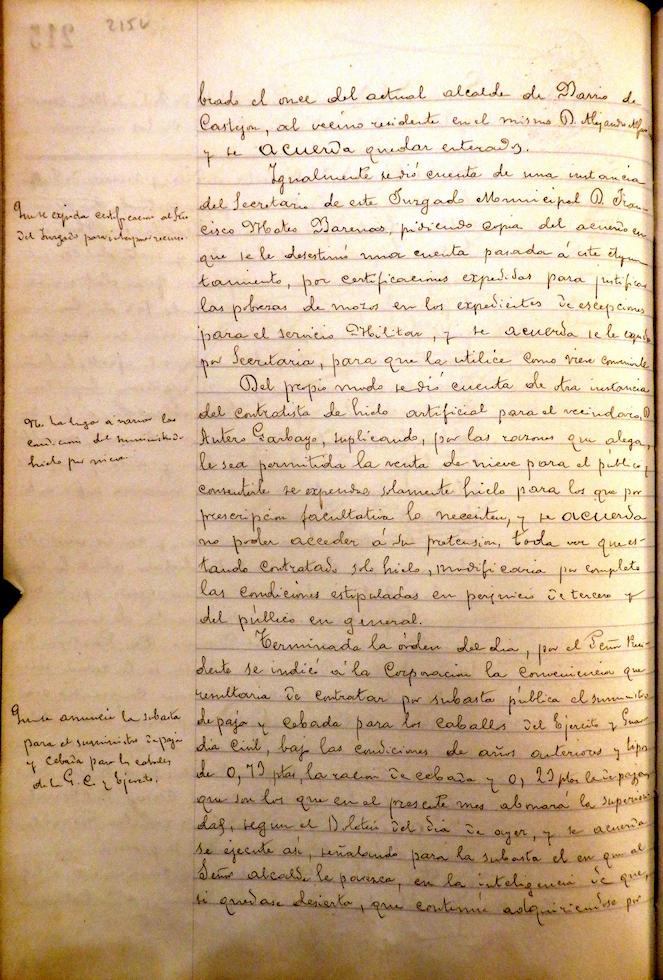 215V
brado el once del actual alcalde de Barrio de
Castejon, al vecino residente en el mismo D. Alejandro
y se acuerda quedar enterado.
Igualmente se dió cuenta de una instancia
del Secretario de este Juzgado Municipal D. Fran-
cisco Mateo Barenas, pidiendo copia del acuerdo en
que se le desestimó una cuenta pasada á este Ayun-
tamiento, por certificaciones expedidas para justificar
las pobrezas de mozos en los expedientes de escepciones
para el servicio Militar, y se acuerda se le expida
por Secretaria, para que la utilice como viere conveniente
Del propio modo se dió cuenta de otra instancia
del contratista de hielo artificial para el vecindario, D.
Antero Garbayo, suplicando, por las razones que alega,
le sea permitida la venta de nieve para el público y
consentirle se expenda solamente hielo para los que por
prescripción facultativa lo necesiten, y se acuerda
no poder acceder á su pretension, toda vez que es-
tando contratado solo hielo, modificaria por completo
las condiciones estipuladas en perjuicio de tercero y
del público en general.
Terminada la órden del dia, por el Señor Presi-
dente se indicó á la Corporacion la conveniencia que
resultaria de contratar por subasta pública el suministro
de paja y cebada para los caballos del Ejercito y Guar
dia Civil, bajo las condiciones de años anteriores y tipo
de 0,73 ptas, la racion de cebada y 0,23 ptas la de paja,
que son los que en el presente mes abonará la superiori
dad, segun el Boletin del dia de ayer, y se acuerda
se ejecute asi, señalando para la subasta el en que al
Señor alcalde le parezca, en la inteligencia de que,
si quedase desierta, que continúe adquiriendose por
Que se expida certificacion al Srio
del Juzgado para
No ha lugar a variar las
condiciones del suministro de
hielo por nieve.
Que se anuncie la subasta
para el suministro de paja
y cebada para los caballos
de la G. C. y Ejercito.